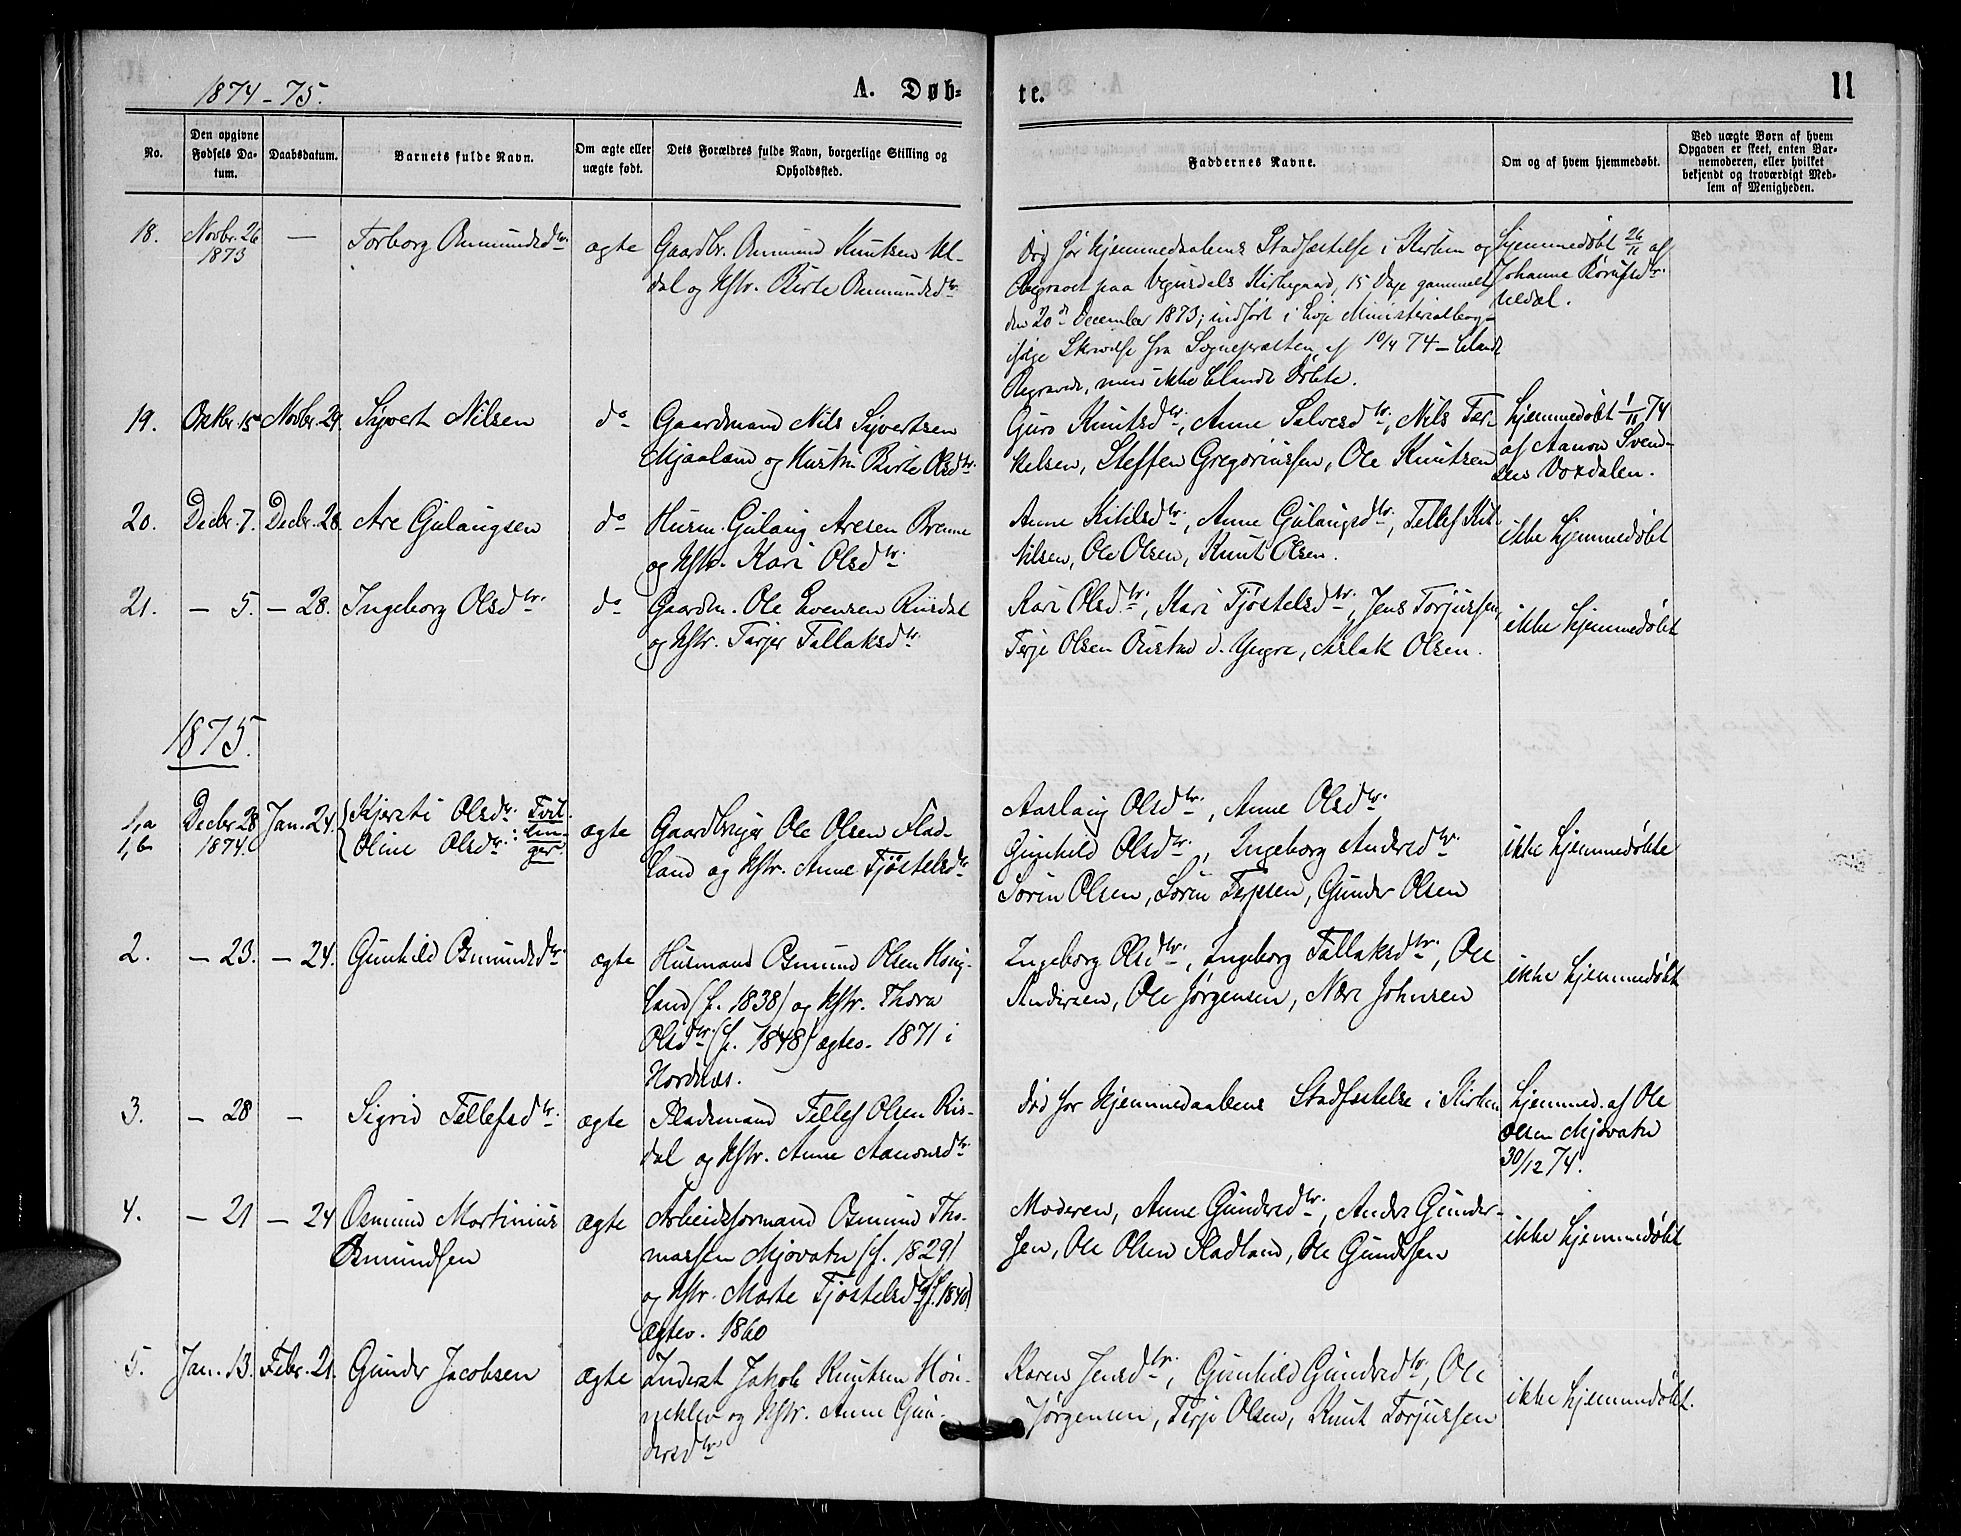 1874-75.
A. Døb-
te.
11
No.
Den opgivne Fødsels Datum.
Daabsdatum.
Barnets fulde Navn.
Om ægte eller uægte født.
Dets Forældres fulde Navn, borgerlige Stilling og Opholdssted.
Faddernes Navne.
Om og af hvem hjemmedøbt.
Ved uægte Børn af hvem Opgaven er skeet, enten Barnemoderen, eller hvilket bekjendt og troværdigt Medlem af Menigheden.
18.
Novbr. 26
1873
—
Torborg Osmundsdtr.
ægte
Gaardbr. Osmund Knutsen
dal og Hstr. Birte Osmundsdtr
Død før Hjemmedaabens Stadfæstelse i Kirken og
Begravet paa Vegusdals Kirkegaard, 15 Dage gammel
den 20de December 1873; indført i Ministerialbog
ifølge Skrivelse fra Sognepræsten af 10/4 74 - blandt
Begravede, men ikke blandt Døbte.
Hjemmedøbt 26/11 af
Johanne
19.
Oktbr. 15
Novbr. 29.
Syvert Nilsen
do
Gaardmand Nils Syvertsen
Mjaaland og Kustru Birte Olsdtr.
Guro Knutsdtr., Anne Salvesdtr., Nils Ter-
kelsen, Steffen Gregoriussen, Ole Knutsen
Hjemmedøbt 1/11 74
af Aanon Svend-
sen Voxdalen.
20.
Decbr. 7.
Decbr. 28
Are Gulaugsen
do
Husm. Gulaug Aresen Brenne
og Hstr. Kari Olsdtr.
Anne Kitilsdtr., Anne Gulaugsdtr., Tellef Kit-
tilsen, Ole Olsen, Knut Olsen.
ikke hjemmedøbt
21.
— 5.
— 28.
Ingeborg Olsdtr.
do
Gaardm. Ole Evensen Riisdal
og Hstr. Tarjer Tallaksdtr.
Kari Olsdtr., Kari Tjøstelsdtr., Jens Torjussen,
Terje Olsen Oustad d. Yngre, Aslak Olsen.
ikke hjemmedøbt
1875.
1,a
1,b
Decbr. 28
1874.
Jan. 24.
Kjersti Olsdtr. Tvil-
Oline Olsdtr. : lin-
ger
ægte
Gaardbruger Ole Olsen Flad-
land og Hstr. Anne Tjøstelsdtr
Aaslaug Olsdtr., Anne Olsdtr.
Gunhild Olsdtr., Ingeborg Andresdtr.
Søren Olsen, Søren Terjesen, Gunder Olsen
ikke hjemmedøbte
2.
— 23.
— 24.
Gunhild Osmundsdtr.
ægte
Husmand Osmund Olsen Haug-
land (f. 1838) og Hstr. Thora
Olsdtr. (f. 1848) ægtev. 1871 i
Hordnæs.
Ingeborg Olsdtr., Ingeborg Tallaksdtr., Ole
Andersen, Ole Jørgensen, Næri Johnsen
ikke hjemmedøbt
3.
— 28
—
Sigrid Tellefsdtr.
ægte
Pladsmand Tellef Olsen Ris-
dal og Hstr. Anne Aanonsdtr.
Død før Hjemmedaabens Stadfæstelse i Kirken
Hjemmed. af Ole
Olsen Mjøvatn
30/12 74.
4.
— 21
— 24
Osmund Martinius
Osmundsen
ægte
Arbeidsformand Osmund Tho-
massen Mjøvatn (f. 1829)
og Hstr. Marte Tjøstelsdtr (f. 1840)
Ægtev. 1860
Moderen, Anne Gundersdtr., Anders Gunder-
sen, Ole Olsen Fladland, Ole Gundersen
ikke hjemmedøbt
5.
Jan. 13.
Febr. 21.
Gunder Jacobsen
ægte
Inderst Jakob Knutsen Høn-
neklev og Hstr. Anne Gun-
dersdtr.
Karen Jensdtr., Gunhild Gundersdtr., Ole
Jørgensen, Terje Olsen, Knut Torjussen
ikke hjemmedøbt.